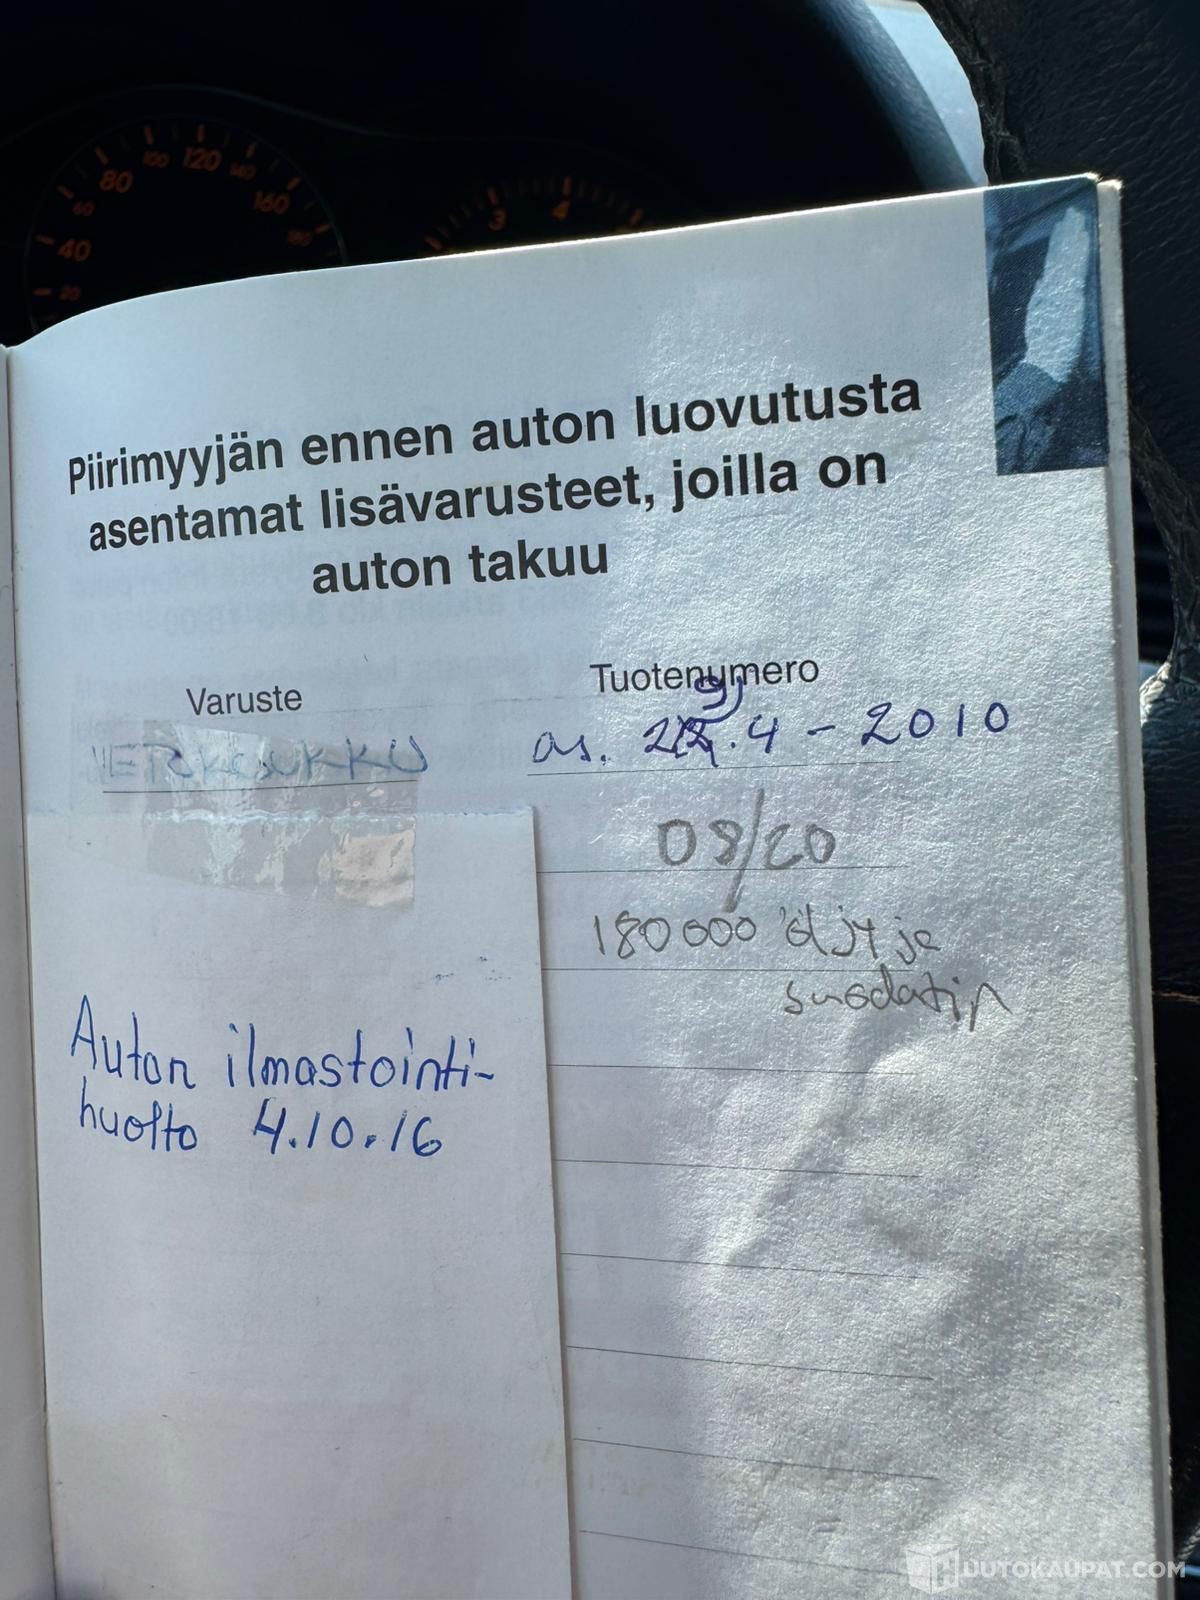 20
40
60
80
100
120
140
160
180
3
4
Piirimyyjän ennen auton luovutusta
asentamat lisävarusteet, joilla on
auton takuu
Varuste
Tuotenumero
VETOKOUKKU
as. .4 - 2010
08/20
180 000 öljy ja
suodatin
Auton ilmastointi-
huolto 4.10.16
HUUTOKAUPAT.COM